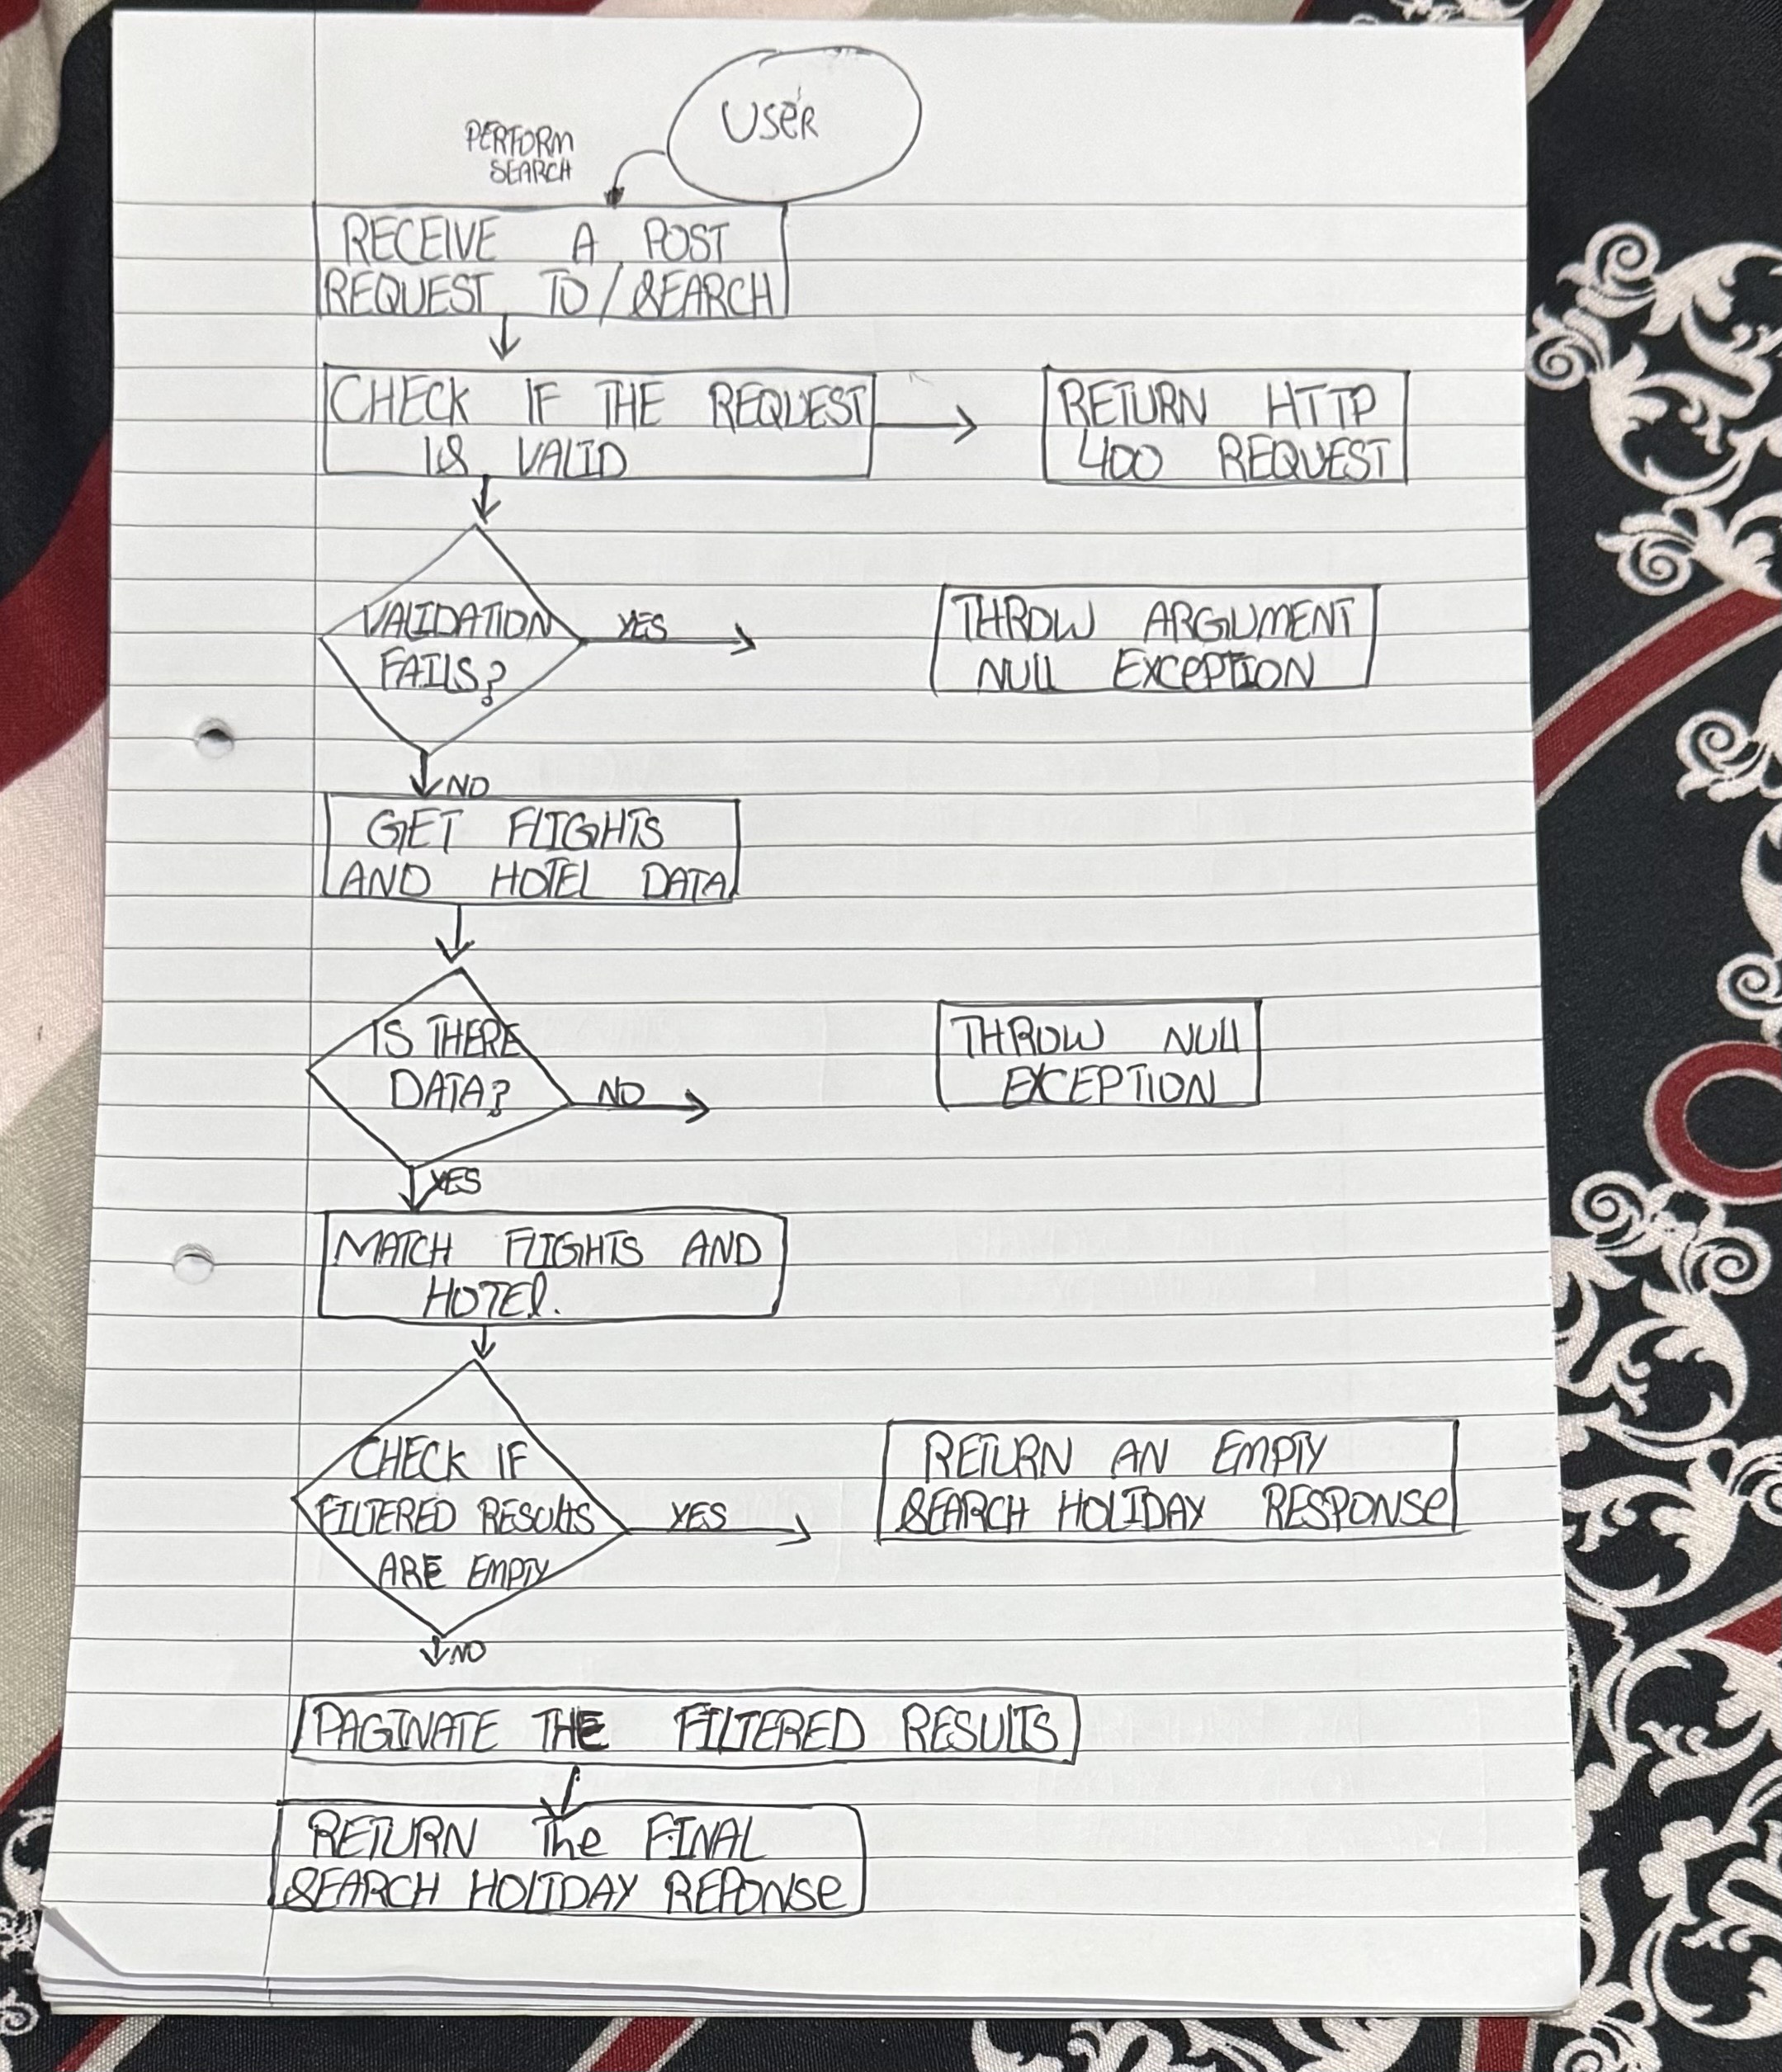 USER
PERFORM
SEARCH
RECEIVE A POST
REQUEST TO / SEARCH
CHECK IF THE REQUEST
IS VALID
RETURN HTTP
400 REQUEST
VALIDATION
FAILS?
YES
THROW ARGUMENT
NULL EXCEPTION
NO
GET FLIGHTS
AND HOTEL DATA
IS THERE
DATA?
NO
THROW NULL
EXCEPTION
YES
MATCH FLIGHTS AND
HOTEL.
CHECK IF
FILTERED RESULTS
ARE EMPTY
YES
RETURN AN EMPTY
SEARCH HOLIDAY RESPONSE
NO
PAGINATE THE FILTERED RESULTS
RETURN The FINAL
SEARCH HOLIDAY REPONSE